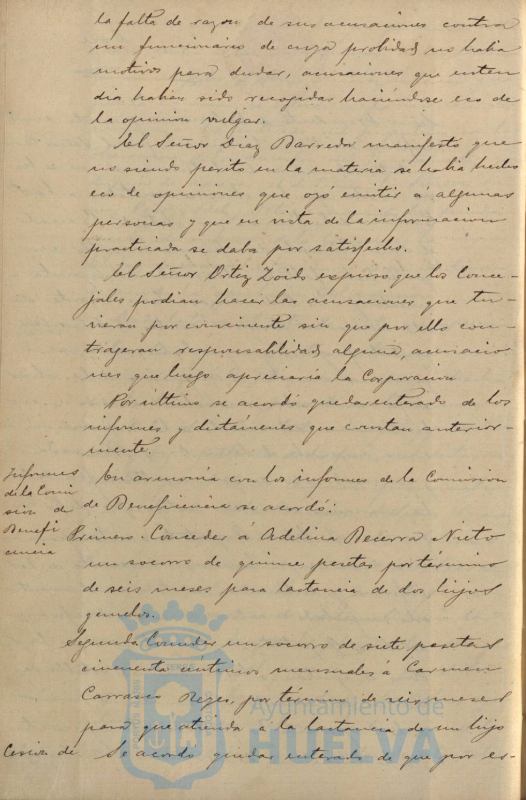 la falta de razon de sus acusaciones contra
un funcionario de cuya probidad no habia
motivos para dudar, acusaciones que enten
dia habian sido recogidas haciéndose eco de
la opinion vulgar.
El Señor Diaz Barreda manifestó que
no siendo perito en la materia se habia hecho
eco de opiniones que oyó emitir á algunas
personas y que en vista de la informacion
practicada se daba por satisfecho.
El Señor Ortiz Zoido expuso que los Conce-
jales podian hacer las acusaciones que tu-
vieran por conveniente sin que por ello con-
trageran responsabilidad alguna, acusacio
nes que luego apreciaria la Corporacion
Por último se acordó quedar enterado de los
informes y dictámenes que constan anterior-
mente.
Informes
de la Comi
sion de
Benefi
cencia
En armonía con los informes de la Comision
de Beneficencia se acordó:
Primero: Conceder á Adelina Becerra Nieto
un socorro de quince pesetas por término
de seis meses para lactancia de dos hijos
gemelos.
Segundo: Conceder un socorro de siete pesetas
cincuenta céntimos mensuales á Carmen
Carrasco Reyes, por término de seis meses
para que atienda á la lactancia de un hijo
Cesion de
Se acordó quedar enterado de que por es-
Ayuntamiento de
HUELVA